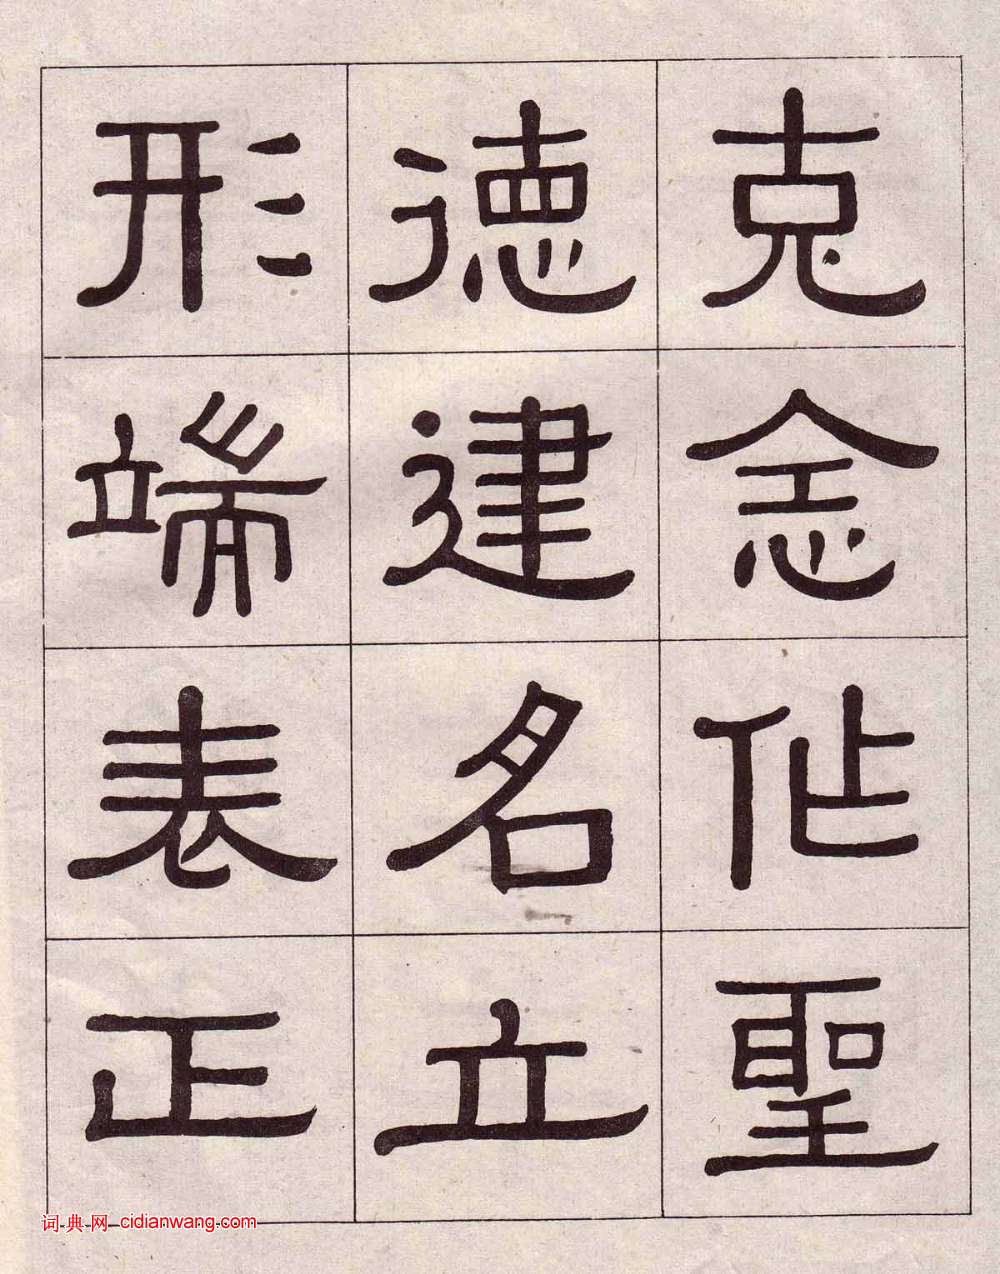 克念作聖
德建名立
形端表正
词典网 cidianwang.com